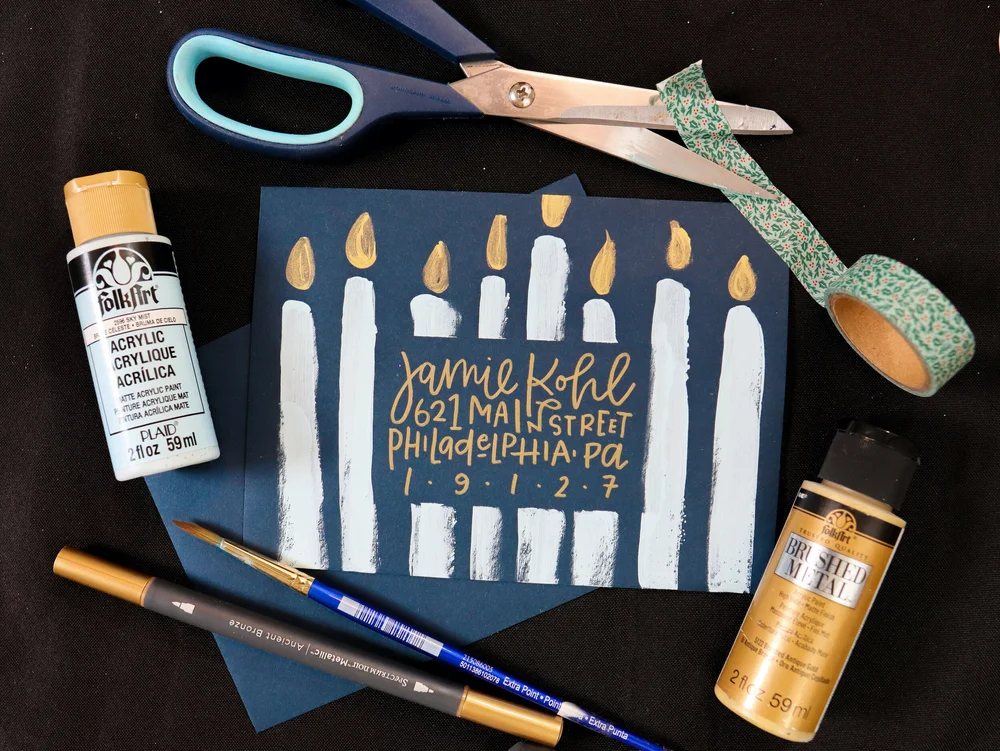 folkArt
2596 SKY MIST
ACRYLIC
ACRYLIQUE
ACRÍLICA
MATTE ACRYLIC PAINT
PEINTURE ACRYLIQUE MAT
PINTURA ACRÍLICA MATE
PLAID
2 fl oz 59 ml
Jamie Kohl
621 MAIN STREET
PHILAdeLPHIA·PA
1·9·1·2·7
folkArt
TRUSTED QUALITY
BRUSHED
METAL
2 fl oz 59 ml
Spectrum noir Metallic | Ancient Bronze
215086005
5011386102078
Extra Point • Extra Punta